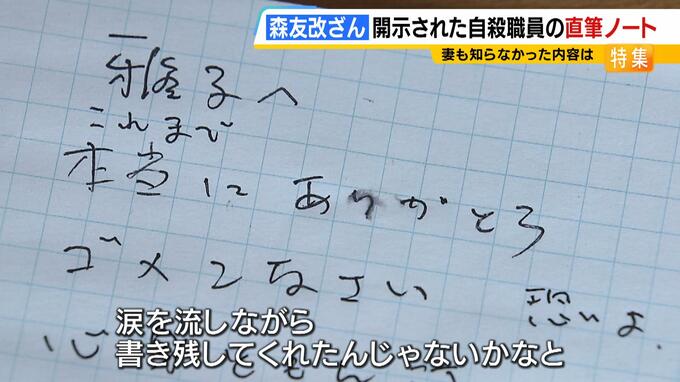 森友改ざん 開示された自殺職員の直筆ノート
妻も知らなかった内容は 特集
雅子へ
これまで
本当にありがとう
ゴメンなさい
恐いよ
心
涙を流しながら
書き残してくれたんじゃないかなと